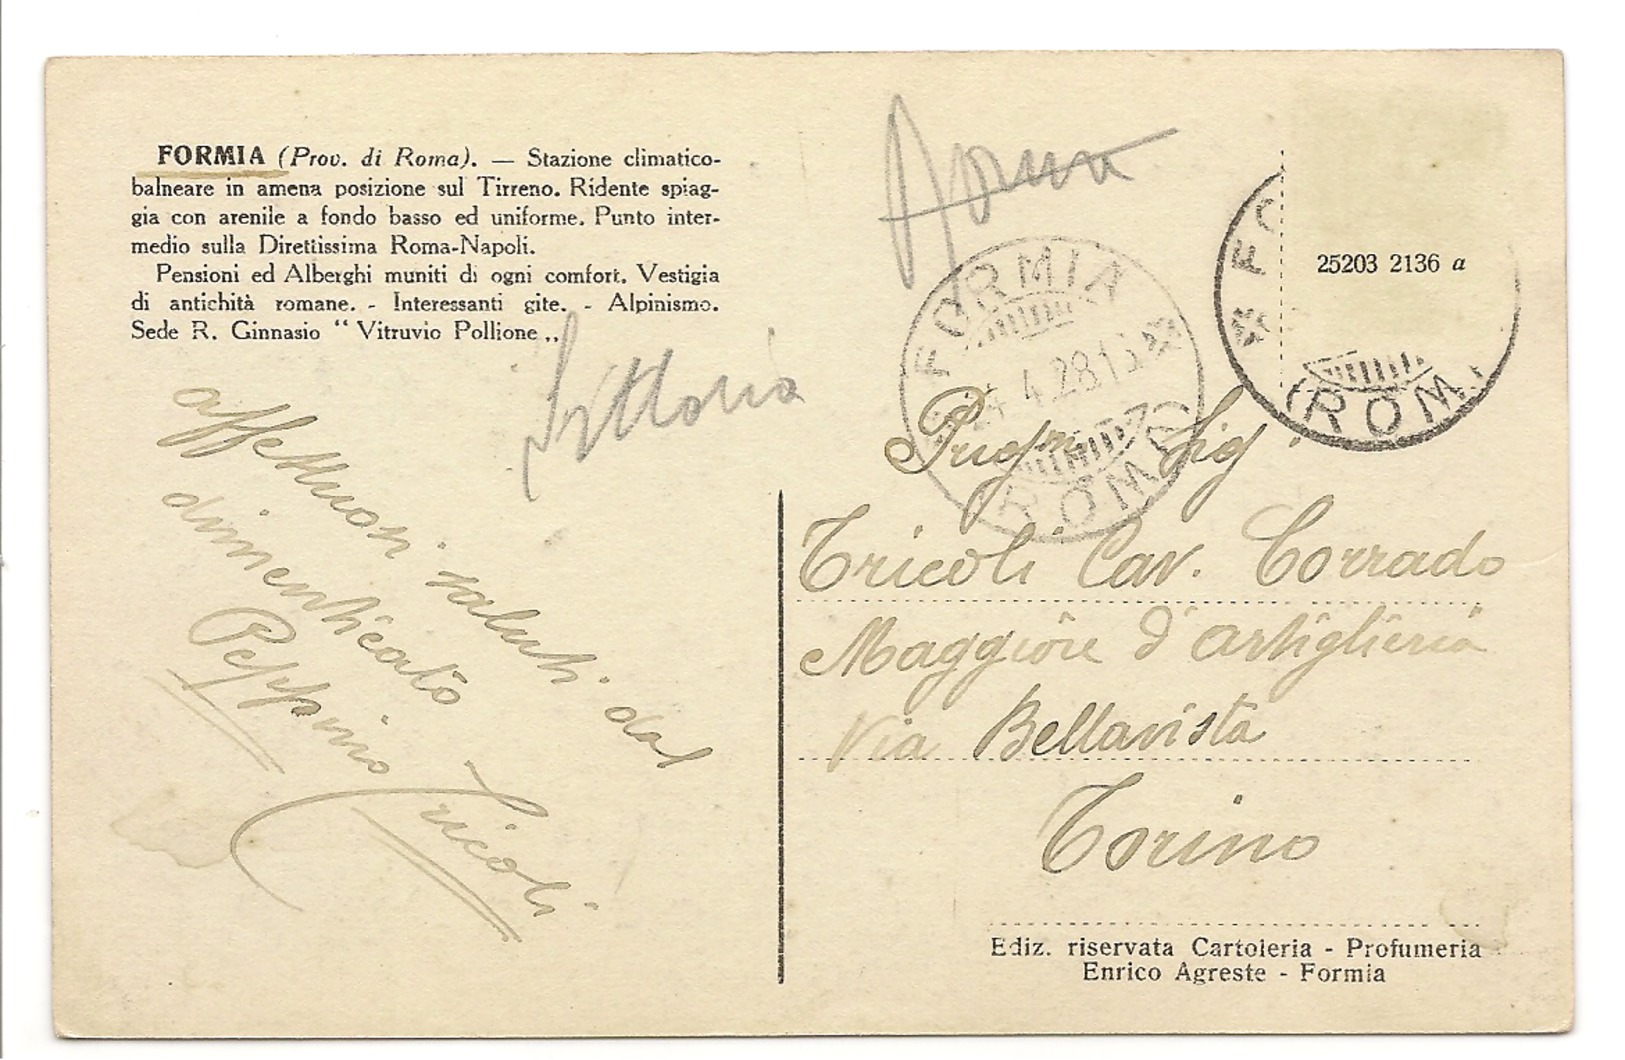 FORMIA (Prov. di Roma). — Stazione climatico-
balneare in amena posizione sul Tirreno. Ridente spiag-
gia con arenile a fondo basso ed uniforme. Punto inter-
medio sulla Direttissima Roma-Napoli.
Pensioni ed Alberghi muniti di ogni comfort. Vestigia
di antichità romane. - Interessanti gite. - Alpinismo.
Sede R. Ginnasio “ Vitruvio Pollione „
affettuosi saluti dal
dimenticato
Peppino Tricoli
FORMIA
4.28.15
(ROMA)
FO
(ROM
25203 2136 a
Sig.
Tricoli Cav. Corrado
Maggiore d'artiglieria
Via Bellavista
Torino
Ediz. riservata Cartoleria - Profumeria
Enrico Agreste - Formia